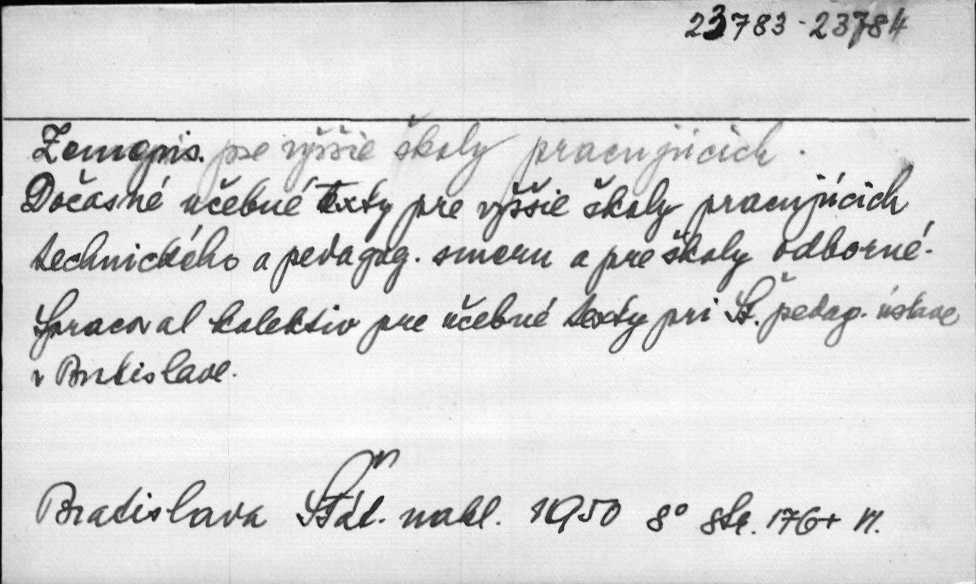 23783-23784
Zemepis. pre vyššie školy pracujúcich.
Dočasné učebné texty pre vyššie školy pracujúcich
technického a pedagog. smeru a pre školy odborné.
Spracoval kolektiv pre učebné texty pri Št. pedag. ústave
v Bratislave.
Bratislava Štát. nakl. 1950 8° str. 176+